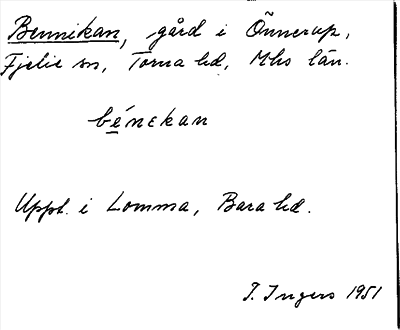 Bennikan, gård i Önnerup,
Fjelie sn, Torna hd, Mhs län.
bénɛkan
Uppt. i Lomma, Bara hd.
I. Ingers 1951